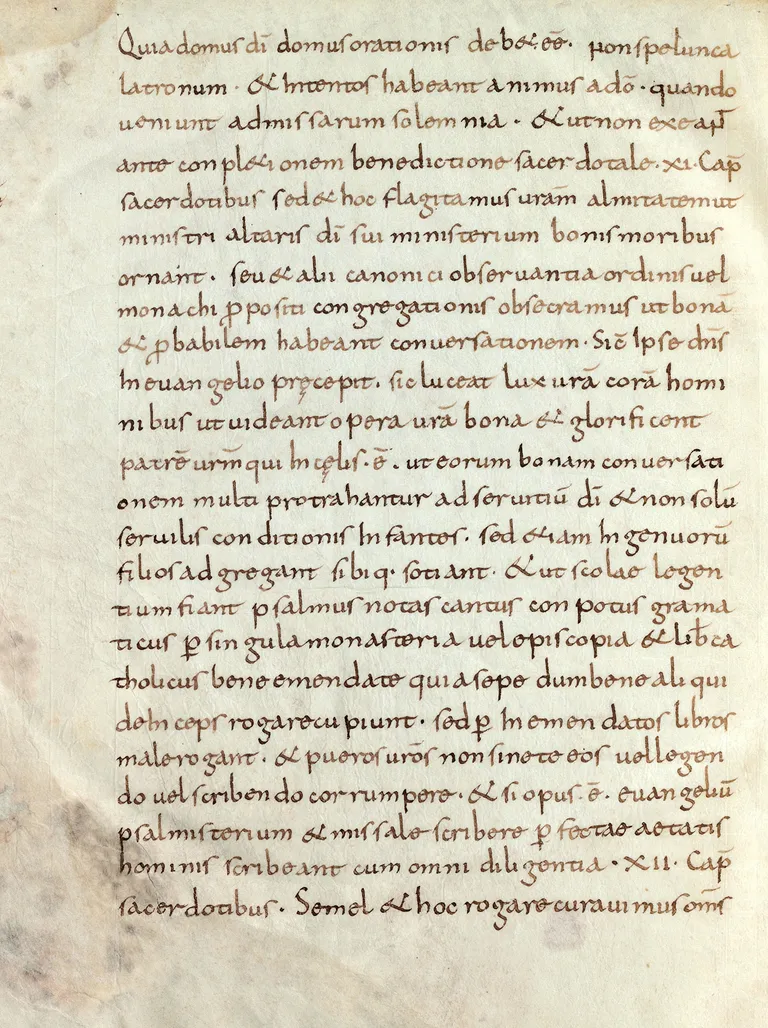 Quia domus dī domus orationis deb& eē. non spelunca
latronum. & Intentos habeant animus ad dō. quando
ueniunt ad missarum solemnia. & ut non exeant
ante conpl&ionem benedictione sacerdotale. XI. Cap̄
sacerdotibus sed & hoc flagitamus uram̄ almitatem ut
ministri altaris dī sui ministerium bonis moribus
ornant. seu & alii canonici obseruantia ordinis uel
monachi ꝓpositi congregationis obsecramus ut bonā
& ꝓbabilem habeant conuersationem. Sic̄ Ipse dn̄s
In euangelio pręcepit. sic luceat lux urā corā homi
nibus ut uideant opera urā bona & glorificent
patrē urm̄ qui In cęlis. ē. ut eorum bonam conuersati
onem multi protrahantur ad seruitiū dī & non solū
seruilis conditionis Infantes. sed &iam Ingenuorū
filios adgregant sibiq. sotiant. & ut scolae legen
tium fiant psalmus notas cantus conpotus grama
ticus ꝑ singula monasteria uel episcopia & lib̄ ca
tholicus bene emendate quia sepe dum bene aliqui
dehInceps rogare cupiunt. sed ꝑ Inemendatos libros
male rogant. & pueros uros̄ non sinete eos uel legen
do uel scribendo corrumpere. & si opus. ē. euangeliū
psalmisterium & missale scribere ꝑfectae aetatis
hominis scribeant cum omni diligentia. XII. Cap̄
sacerdotibus. Semel & hoc rogare curauimus om̄s